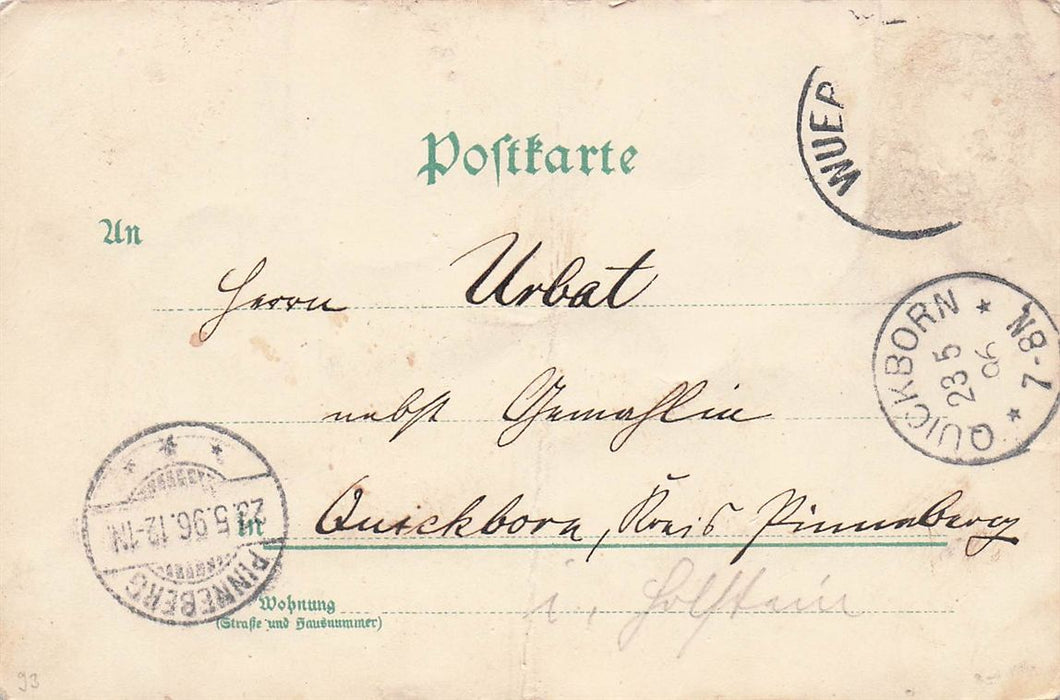 Postkarte
WUER
An
Herrn Urbat
QUICKBORN * N8-7 *
23 5
96
nebst Gemahlin
in Quickborn, Kreis Pinneberg
* * *
23.5.96.12-1N
PINNEBERG
i. Holstein
Wohnung
(Straße und Hausnummer)
93